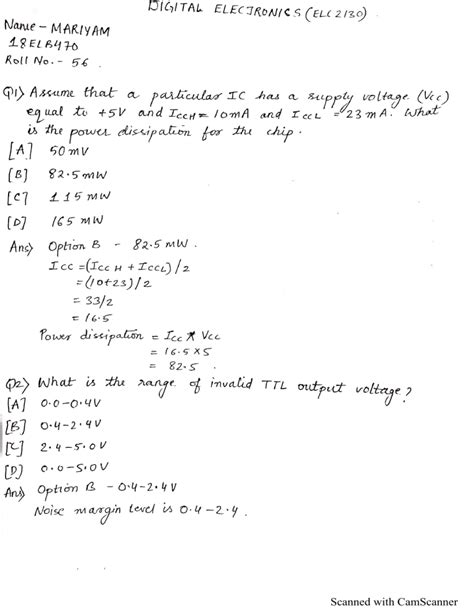 DIGITAL ELECTRONICS (ELC2130)
Name - MARIYAM
18ELB470
Roll No. - 56.
Q1> Assume that a particular IC has a supply voltage (Vcc)
equal to +5V and ICCH = 10mA and ICCL = 23mA. What
is the power dissipation for the chip.
[A] 50mV
[B] 82.5mW
[C] 115mW
[D] 165mW
Ans> Option B - 82.5mW.
Icc = (ICCH + ICCL)/2
= (10+23)/2
= 33/2
= 16.5
Power dissipation = Icc * Vcc
= 16.5 x 5
= 82.5.
Q2> What is the range of invalid TTL output voltage?
[A] 0.0-0.4V
[B] 0.4-2.4V
[C] 2.4-5.0V
[D] 0.0-5.0V
Ans> Option B - 0.4-2.4V
Noise margin level is 0.4-2.4.
Scanned with CamScanner